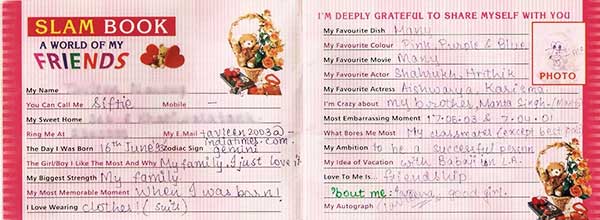 SLAM BOOK
A WORLD OF MY
FRIENDS
My Name
You Can Call Me Siftie Mobile -
My Sweet Home
Ring Me At My E.Mail tavleen2003@-
indiatimes.com
The Day I Was Born 16th June 93 Zodiac Sign gemini
The Girl/Boy I Like The Most And Why My family. I just love it
My Biggest Strength My family
My Most Memorable Moment When I was born!
I Love Wearing clothes! (suit)
I'M DEEPLY GRATEFUL TO SHARE MYSELF WITH YOU
My Favourite Dish Many
My Favourite Colour Pink, Purple & Blue
My Favourite Movie Many
My Favourite Actor Shahrukh, Hrithik
My Favourite Actress Aishwarya, Karisma
PHOTO
I'm Crazy about my brother, Manta Singh
Most Embarrassing Moment 17.08.03 & 7.04.01
What Bores Me Most My classmates (except best pals)
My Ambition to be a successful person
My Idea of Vacation with Babaji in L.A.
Love To Me Is.. friendship
'bout me: good girl.
My Autograph